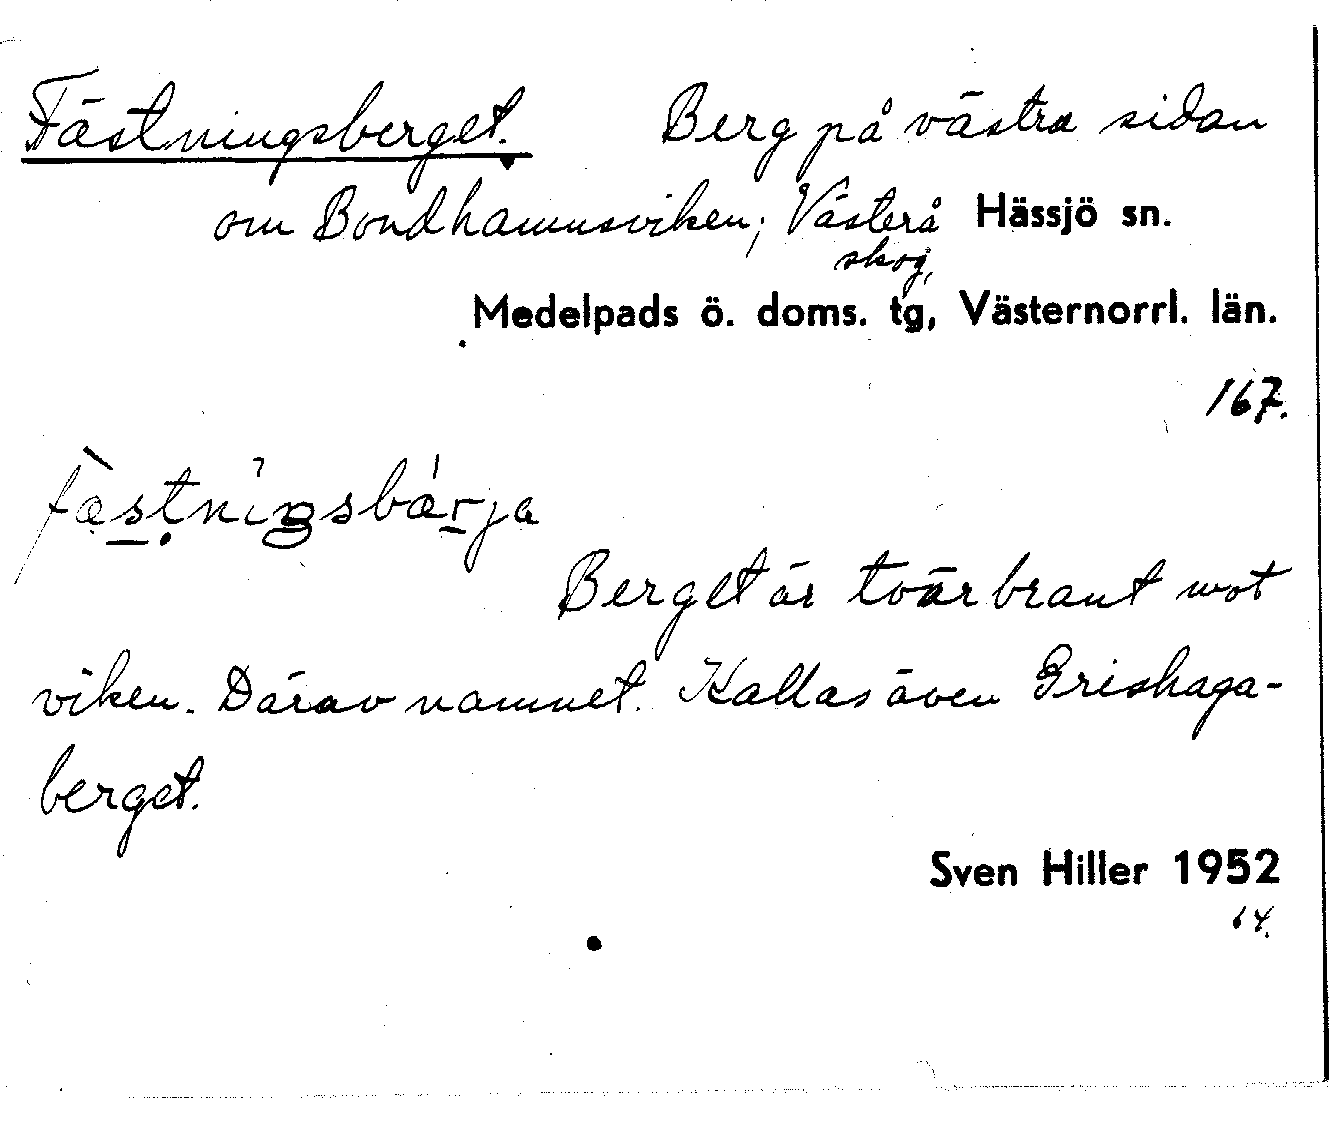 Fästningsberget. Berg på västra sidan
om Bondhamnsviken; Västerå Hässjö sn.
skog,
Medelpads ö. doms. tg, Västernorrl. län.
167.
fæstniŋsbærja
Berget är tvärbrant mot
viken. Därav namnet. Kallas även Grishaga-
berget.
Sven Hiller 1952